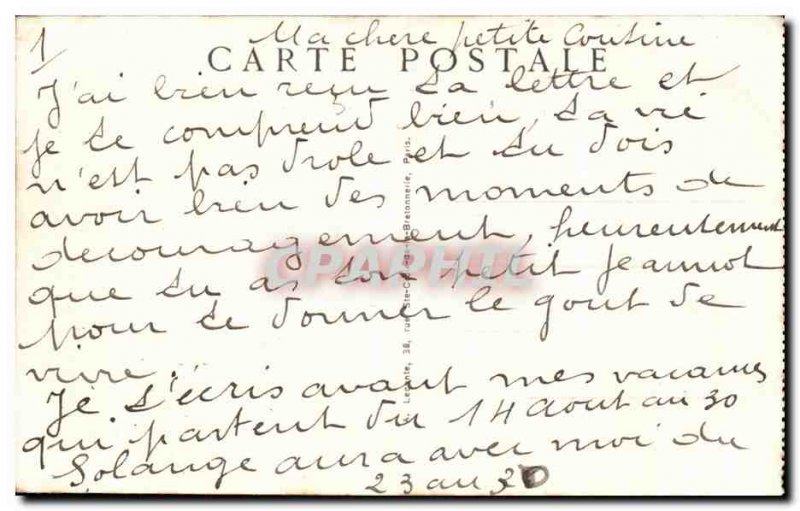 1
Ma chere petite Cousine
CARTE POSTALE
J'ai bien reçu ta lettre et
je te comprend bien, ta vie
n'est pas drole et tu dois
avoir bien des moments de
decouragement, heureusement
que tu as ton petit Jeannot
pour te donner le gout de
vivre.
Je t'écris avant mes vacances
qui partent du 14 Aout au 30
Solange aura avec moi du
23 au 30
Leconte, 38, rue Ste-Croix-de-la-Bretonnerie, Paris.
CPAPHIL